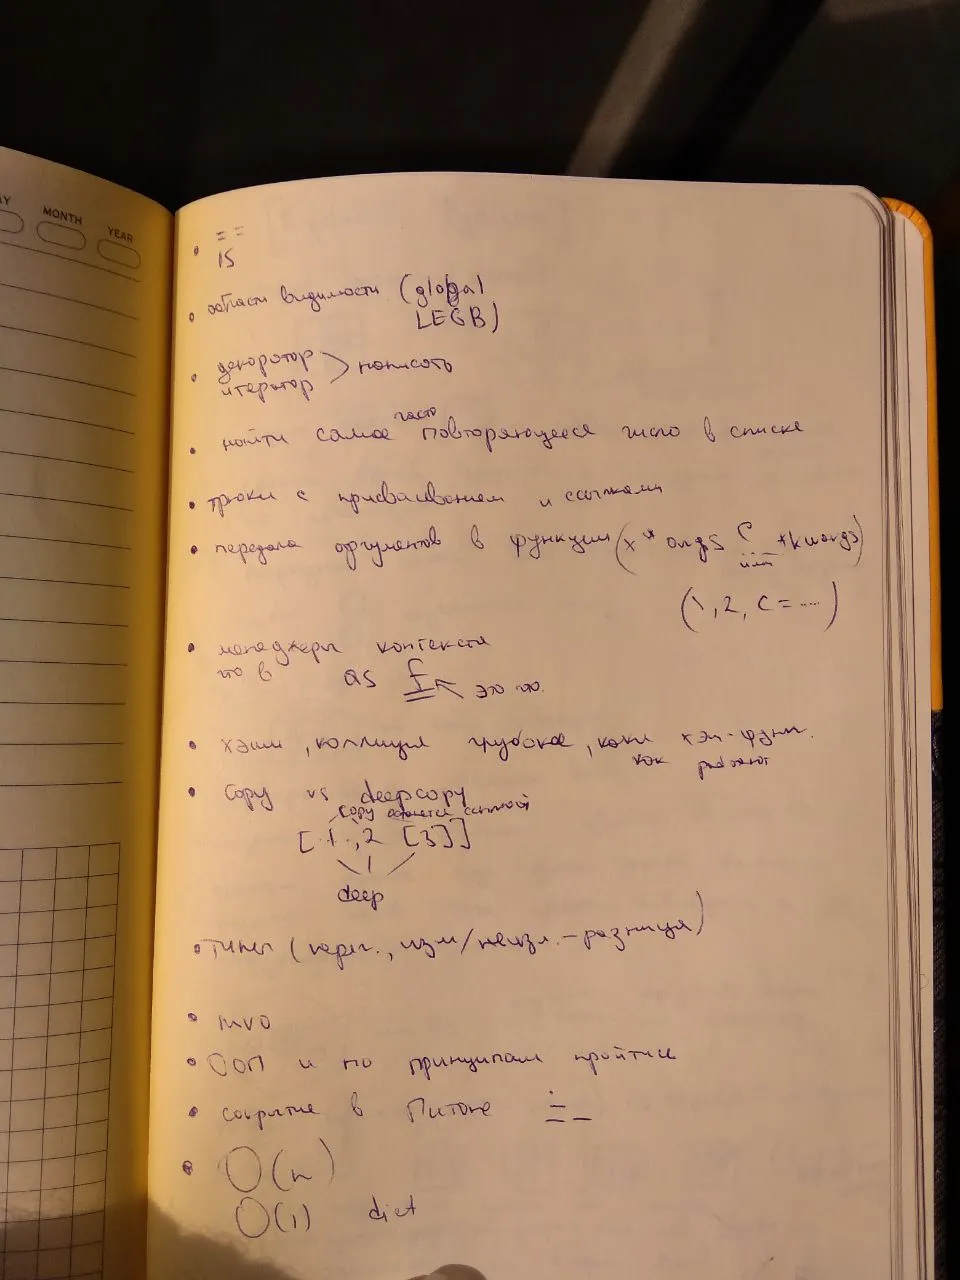 AY
MONTH
YEAR
• ==
is
• области видимости (global
LEGB)
• декоратор
итератор > написать
• найти самое часто повторяющееся число в списке
• трюки с присваиванием и ссылками
• передача аргументов в функции (x *args C *kwargs)
(1, 2, c = ....)
• менеджеры контекста
что в as f ← это что.
• хэши, коллизия глубокое, хэш-функ.
как работают
• Copy vs deepcopy
copy ссылкой
[1, 2 [3]]
deep
• типы (изм/неизм. – разница)
• mvo
• ООП и по принципам пройтись
• сокрытие в Питоне
• O(n)
O(1) dict